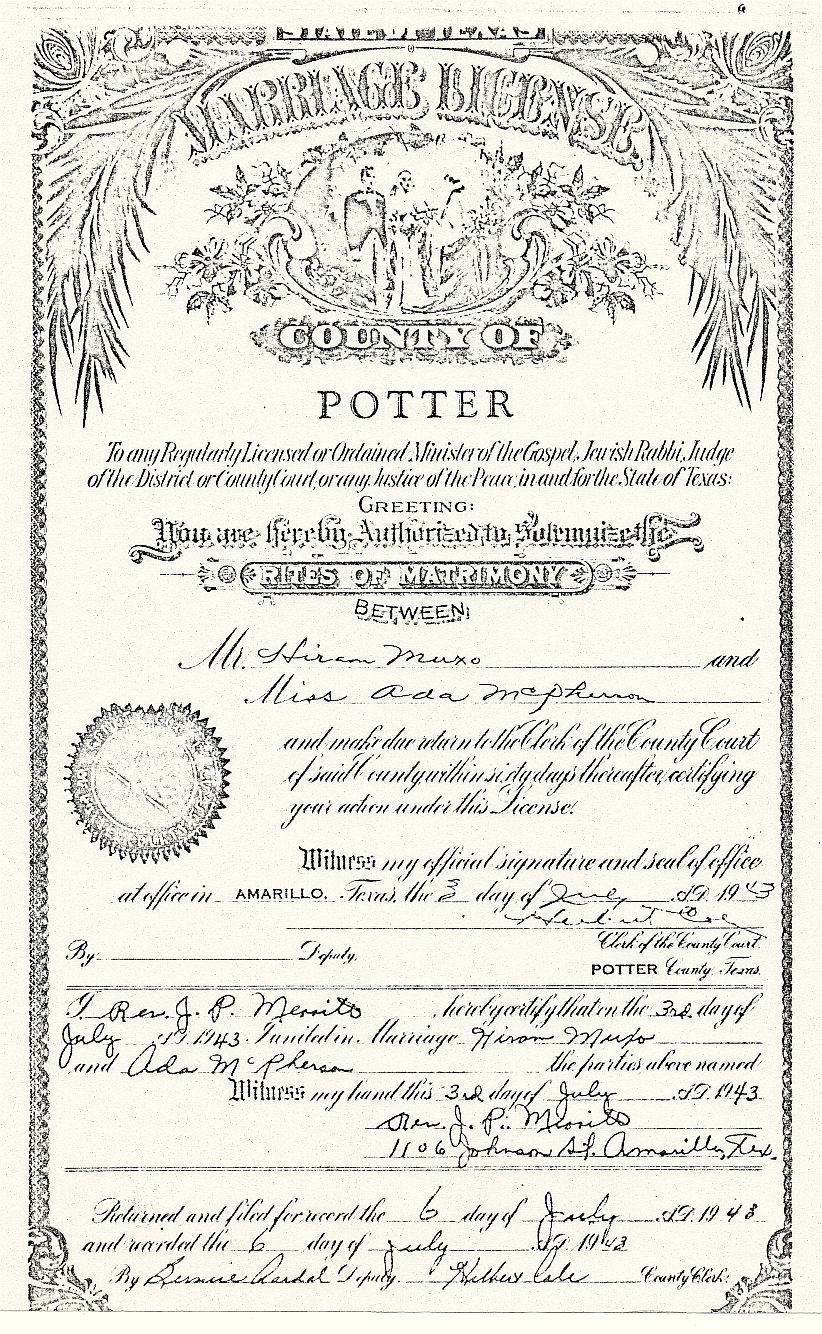 STATE OF TEXAS
MARRIAGE LICENSE
COUNTY OF
POTTER
To any Regularly Licensed or Ordained Minister of the Gospel, Jewish Rabbi, Judge
of the District or County Court, or any Justice of the Peace, in and for the State of Texas:
GREETING:
You are hereby Authorized to Solemnize the
RITES OF MATRIMONY
BETWEEN
Mr. Hiram Muxo and
Miss Ada McPherson
and make due return to the Clerk of the County Court
of said County within sixty days thereafter, certifying
your action under this License.
Witness my official signature and seal of office
at office in AMARILLO, Texas, the 3 day of July A.D. 1943
By Deputy. Clerk of the County Court.
POTTER County, Texas.
I Rev. J. P. , hereby certify that on the 3rd day of
July A.D. 1943. I united in Marriage Hiram Muxo
and Ada McPherson the parties above named
Witness my hand this 3rd day of July A.D. 1943
Rev. J. P.
1106 Johnson St. Amarillo, Tex.
Returned and filed for record the 6 day of July A.D. 1943
and recorded the 6 day of July A.D. 1943
By Deputy. County Clerk.